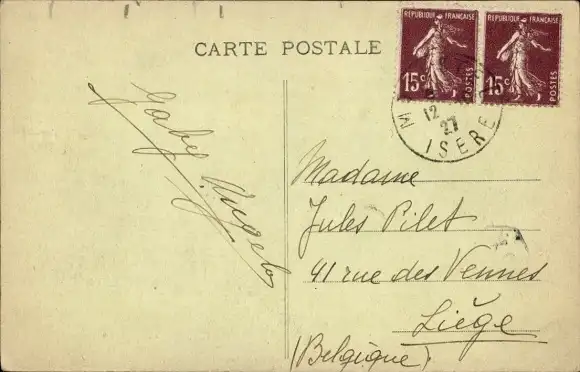 CARTE POSTALE
REPUBLIQUE FRANÇAISE
15c
POSTES
REPUBLIQUE FRANÇAISE
15c
POSTES
12
27
ISERE
Gaby
Madame
Jules Pilet
41 rue des Vennes
Liège
(Belgique)